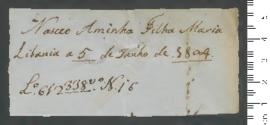 Nasceo Aminha Filha Maria
Libania a 5 de Junho de 1804
Lº 6 N. 16